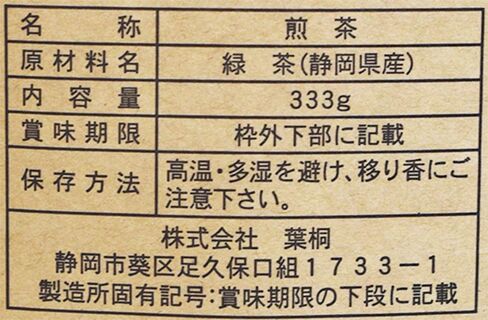 名称 煎茶
原材料名 緑茶(静岡県産)
内容量 333g
賞味期限 枠外下部に記載
保存方法 高温・多湿を避け、移り香にご
注意下さい。
株式会社 葉桐
静岡市葵区足久保口組1733-1
製造所固有記号:賞味期限の下段に記載